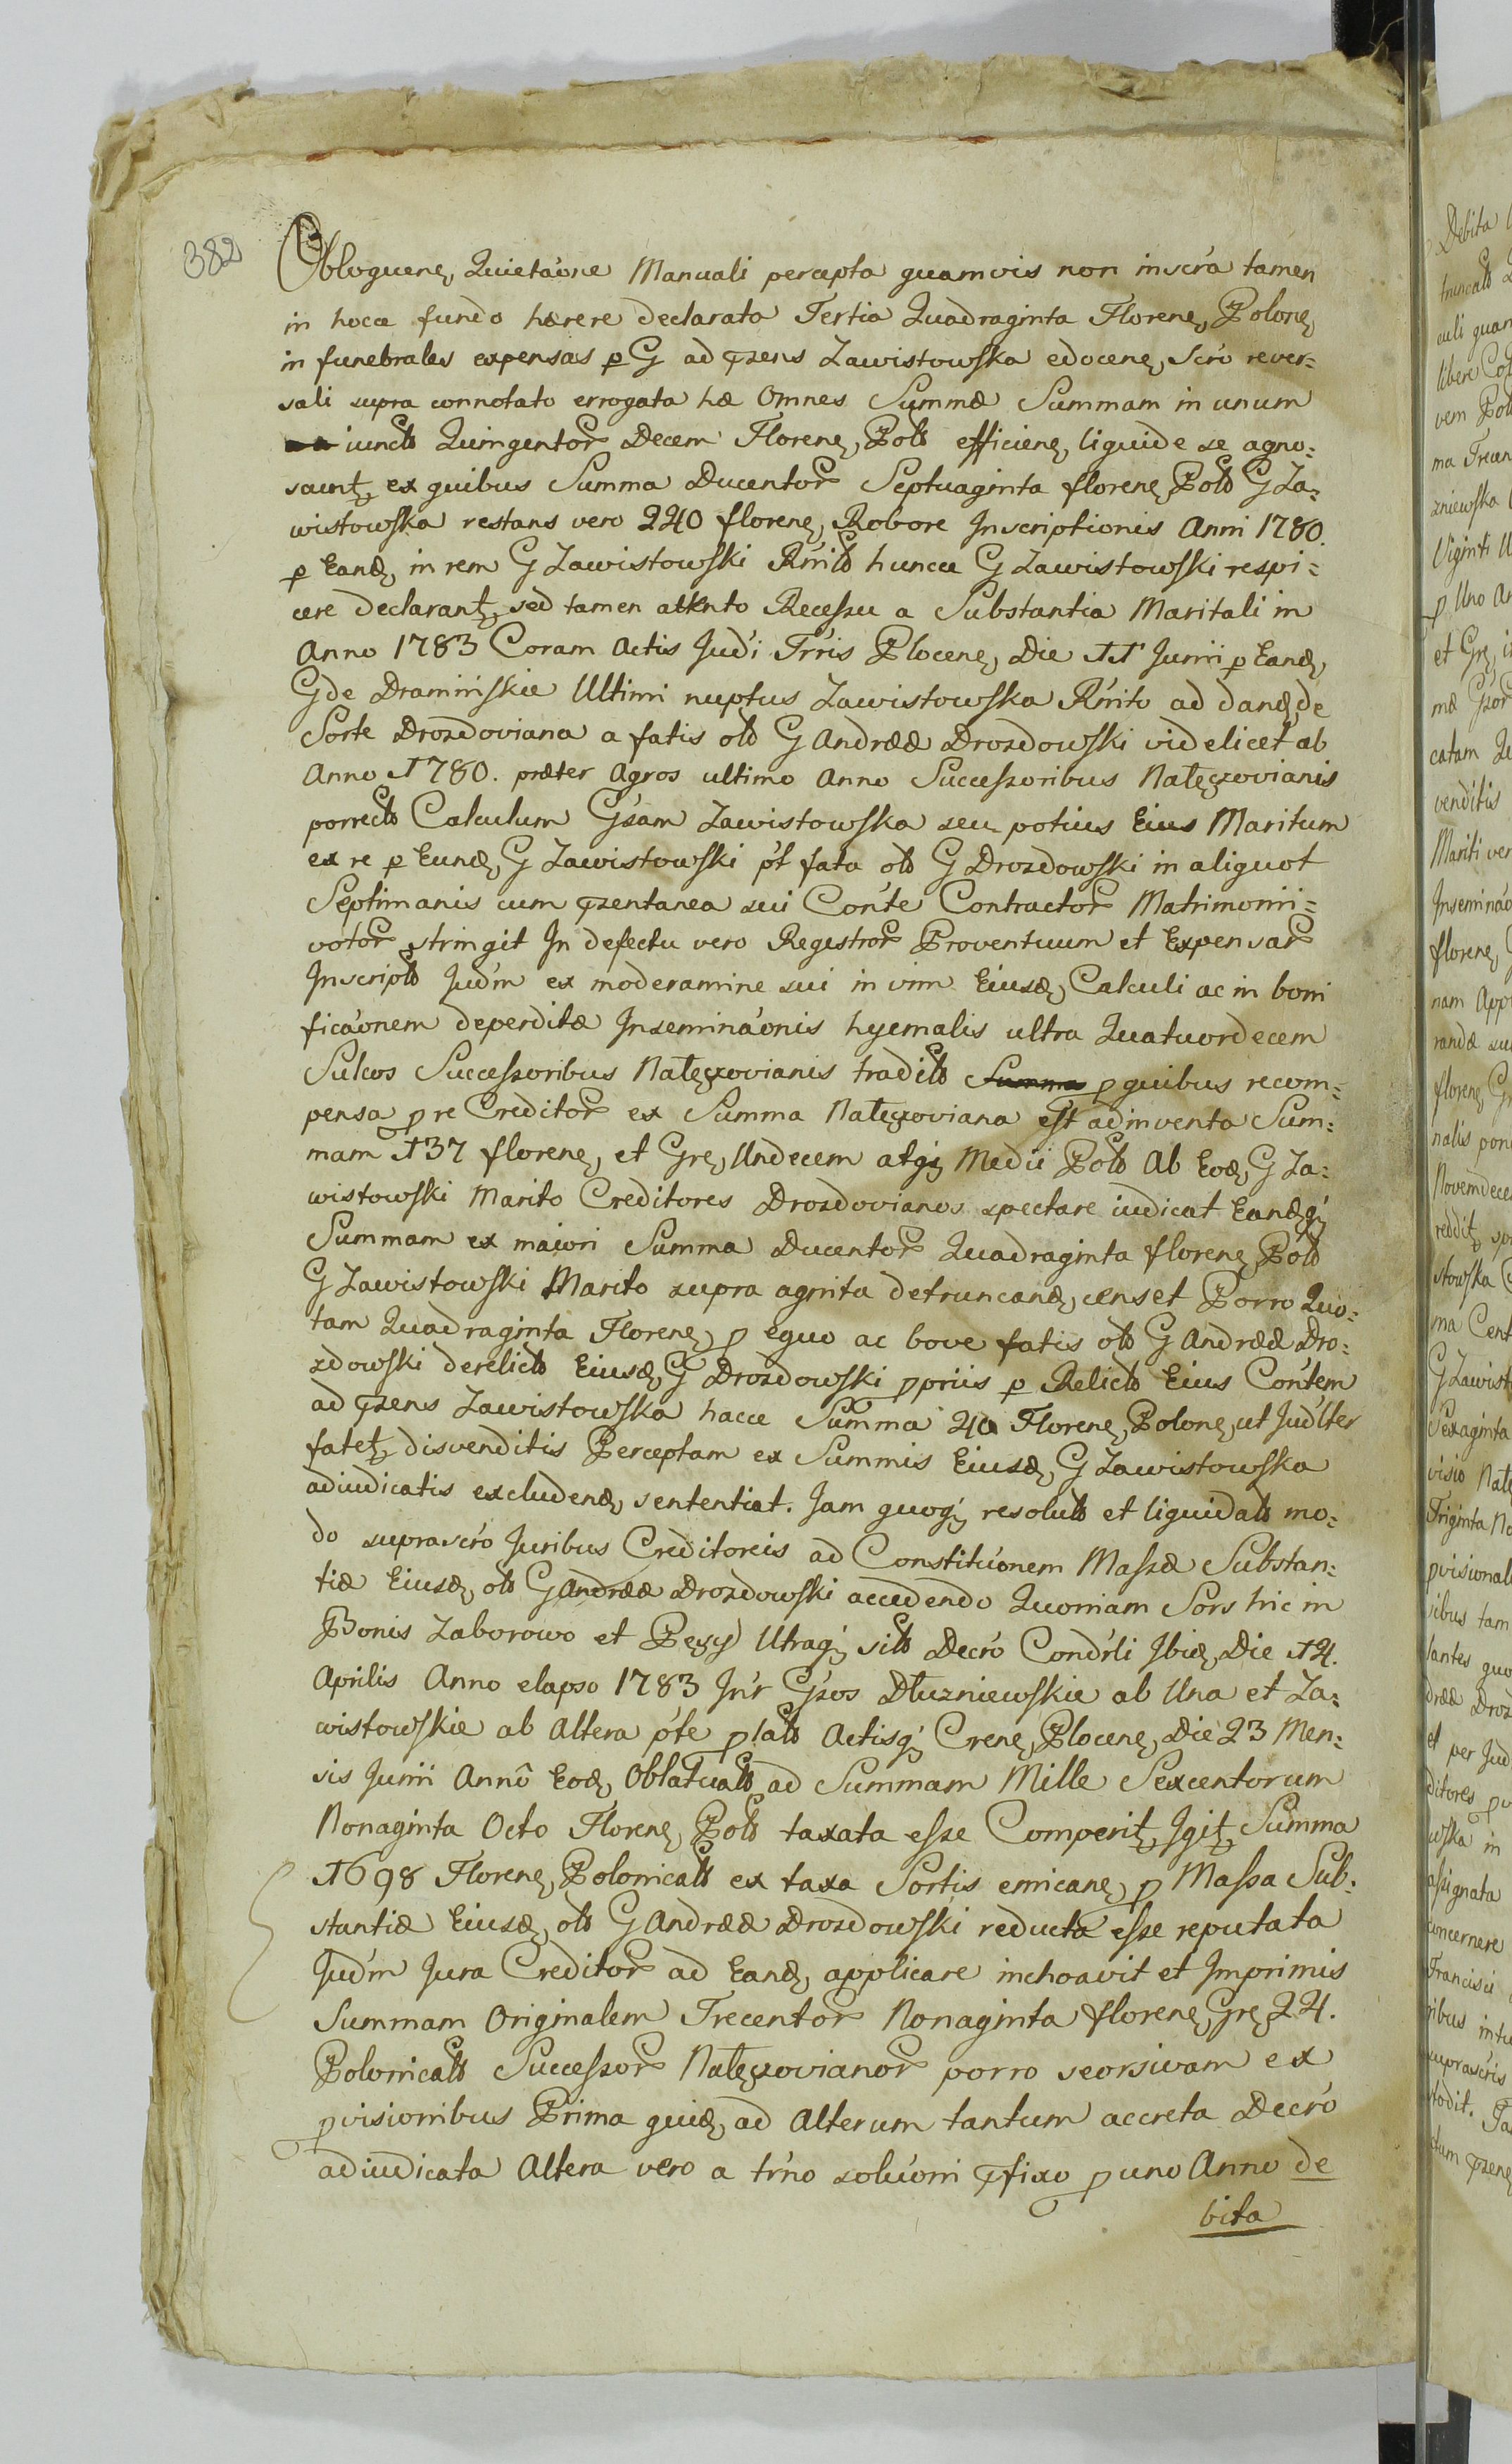 382
Obloquenę, Quietaóne Manuali percepta quamvis non inscŕa tamen
in hocce fundo hærere declarata Tertia Quadraginta Florenę, Polonę,
in funebrales expensas p G ad pzens Zawistowska edocenę, Scŕo rever=
sali supra connotato errogata hæ Omnes Summæ Summam in unum
iunctɔ Quingentor Decem Florenę, Polɔ efficienę, liquide se agno=
scunt, ex quibus Summa Ducentor Septuaginta florenę Polɔ G Za=
wistowska restans vero 240 florenę, Robore Inscriptionis Anni 1780.
p Eandę, in rem G Zawistowski Rḿitɔ huncce G Zawistowski respi=
cere declarant, sed tamen attento Recessu a Substantia Maritali in
Anno 1783 Coram Actis Judi Trŕis Plocenę, Die 11 Junii p Eandę,
G de Dramińskie Ultimi nuptus Zawistowska Rḿito ad dandę, de
Sorte Drozdoviana a fatis olɔ G Andreæ Drozdowski videlicet ab
Anno 1780. præter Agros ultimo Anno Successoribus Natęczovianis
porrectɔ Calculum Gśam Zawistowska seu potius Eius Maritum
ex re p Eundę, G Zawistowski p̓t fata olɔ G Drozdowski in aliquot
Septimanis cum pzentanea sui Conte Contractor Matrimonii=
votor stringit In defectu vero Regestror Proventuum et Expensar
Inscriptɔ Judḿ ex moderamine sui in vim Eiusdę, Calculi ac in boni
ficaónem deperditæ Inseminaónis hyemalis ultra Quatuordecem
Sulcos Successoribus Natęczovianis traditɔ Summa p quibus recom=
pensa p re Creditor ex Summa Natęczoviana est adinventa Sum=
mam 137 florenę, et Grę, Undecem atq́ Medii Polɔ Ab Eodę, G Za=
wistowski Marito Creditores Drozdovianos spectare iudicat Eandęq́
Summam ex maiori Summa Ducentor Quadraginta florenę, Polɔ
G Zawistowski Marito supra agnita detruncandę, censet Porro Quo=
tam Quadraginta Florenę, p equo ac bove fatis olɔ G Andreæ Dro=
zdowski derelictɔ Eiusdę, G Drozdowski ppriis p Relictɔ Eius Contem
ad pzens Zawistowska hacce Summa 40 Florenę, Polonę, ut Judlter
fatet, disvenditis Perceptam ex Summis Eiusdę, G Zawistowska
adiudicatis excludendę, sententiat. Jam quoq́ resolutɔ et liquidatɔ mo=
do suprascŕo Juribus Creditoreis ad Constituónem Massæ Substan=
tiæ Eiusdę, olɔ G Andreæ Drozdowski accedendo Quoniam Sors hic in
Bonis Zaborowo et Pęzy Utraq́ sitɔ Decŕo Condrli Ibidę, Die 14.
Aprilis Anno elapso 1783 Inr Gśos Dłuzniewskie ab Una et Za=
wistowskie ab Altera p̓te p latɔ Actisq́ Crenę, Plocenę, Die 23 Men=
sis Junii Annô Eodę, Oblatuatɔ ad Summam Mille Sexcentorum
Nonaginta Octo Florenę, Polɔ taxata esse Comperit, Igit, Summa
1698 Florenę, Polonicalɔ ex taxa Sortis emicanę, p Massa Sub=
stantiæ Eiusdę, olɔ G Andreæ Drozdowski reducta esse reputata
Judḿ Jura Creditor ad Eandę, applicare inchoavit et Imprimis
Summam Originalem Trecentor Nonaginta florenę, Grę, 24.
Polonicalɔ Successor Natęczovianor porro seorsivam ex
pvisionibus Prima quidę, ad Alterum tantum accreta Decŕo
adiudicata Altera vero a trńo soluóni pfixo p uno Anno de
bita